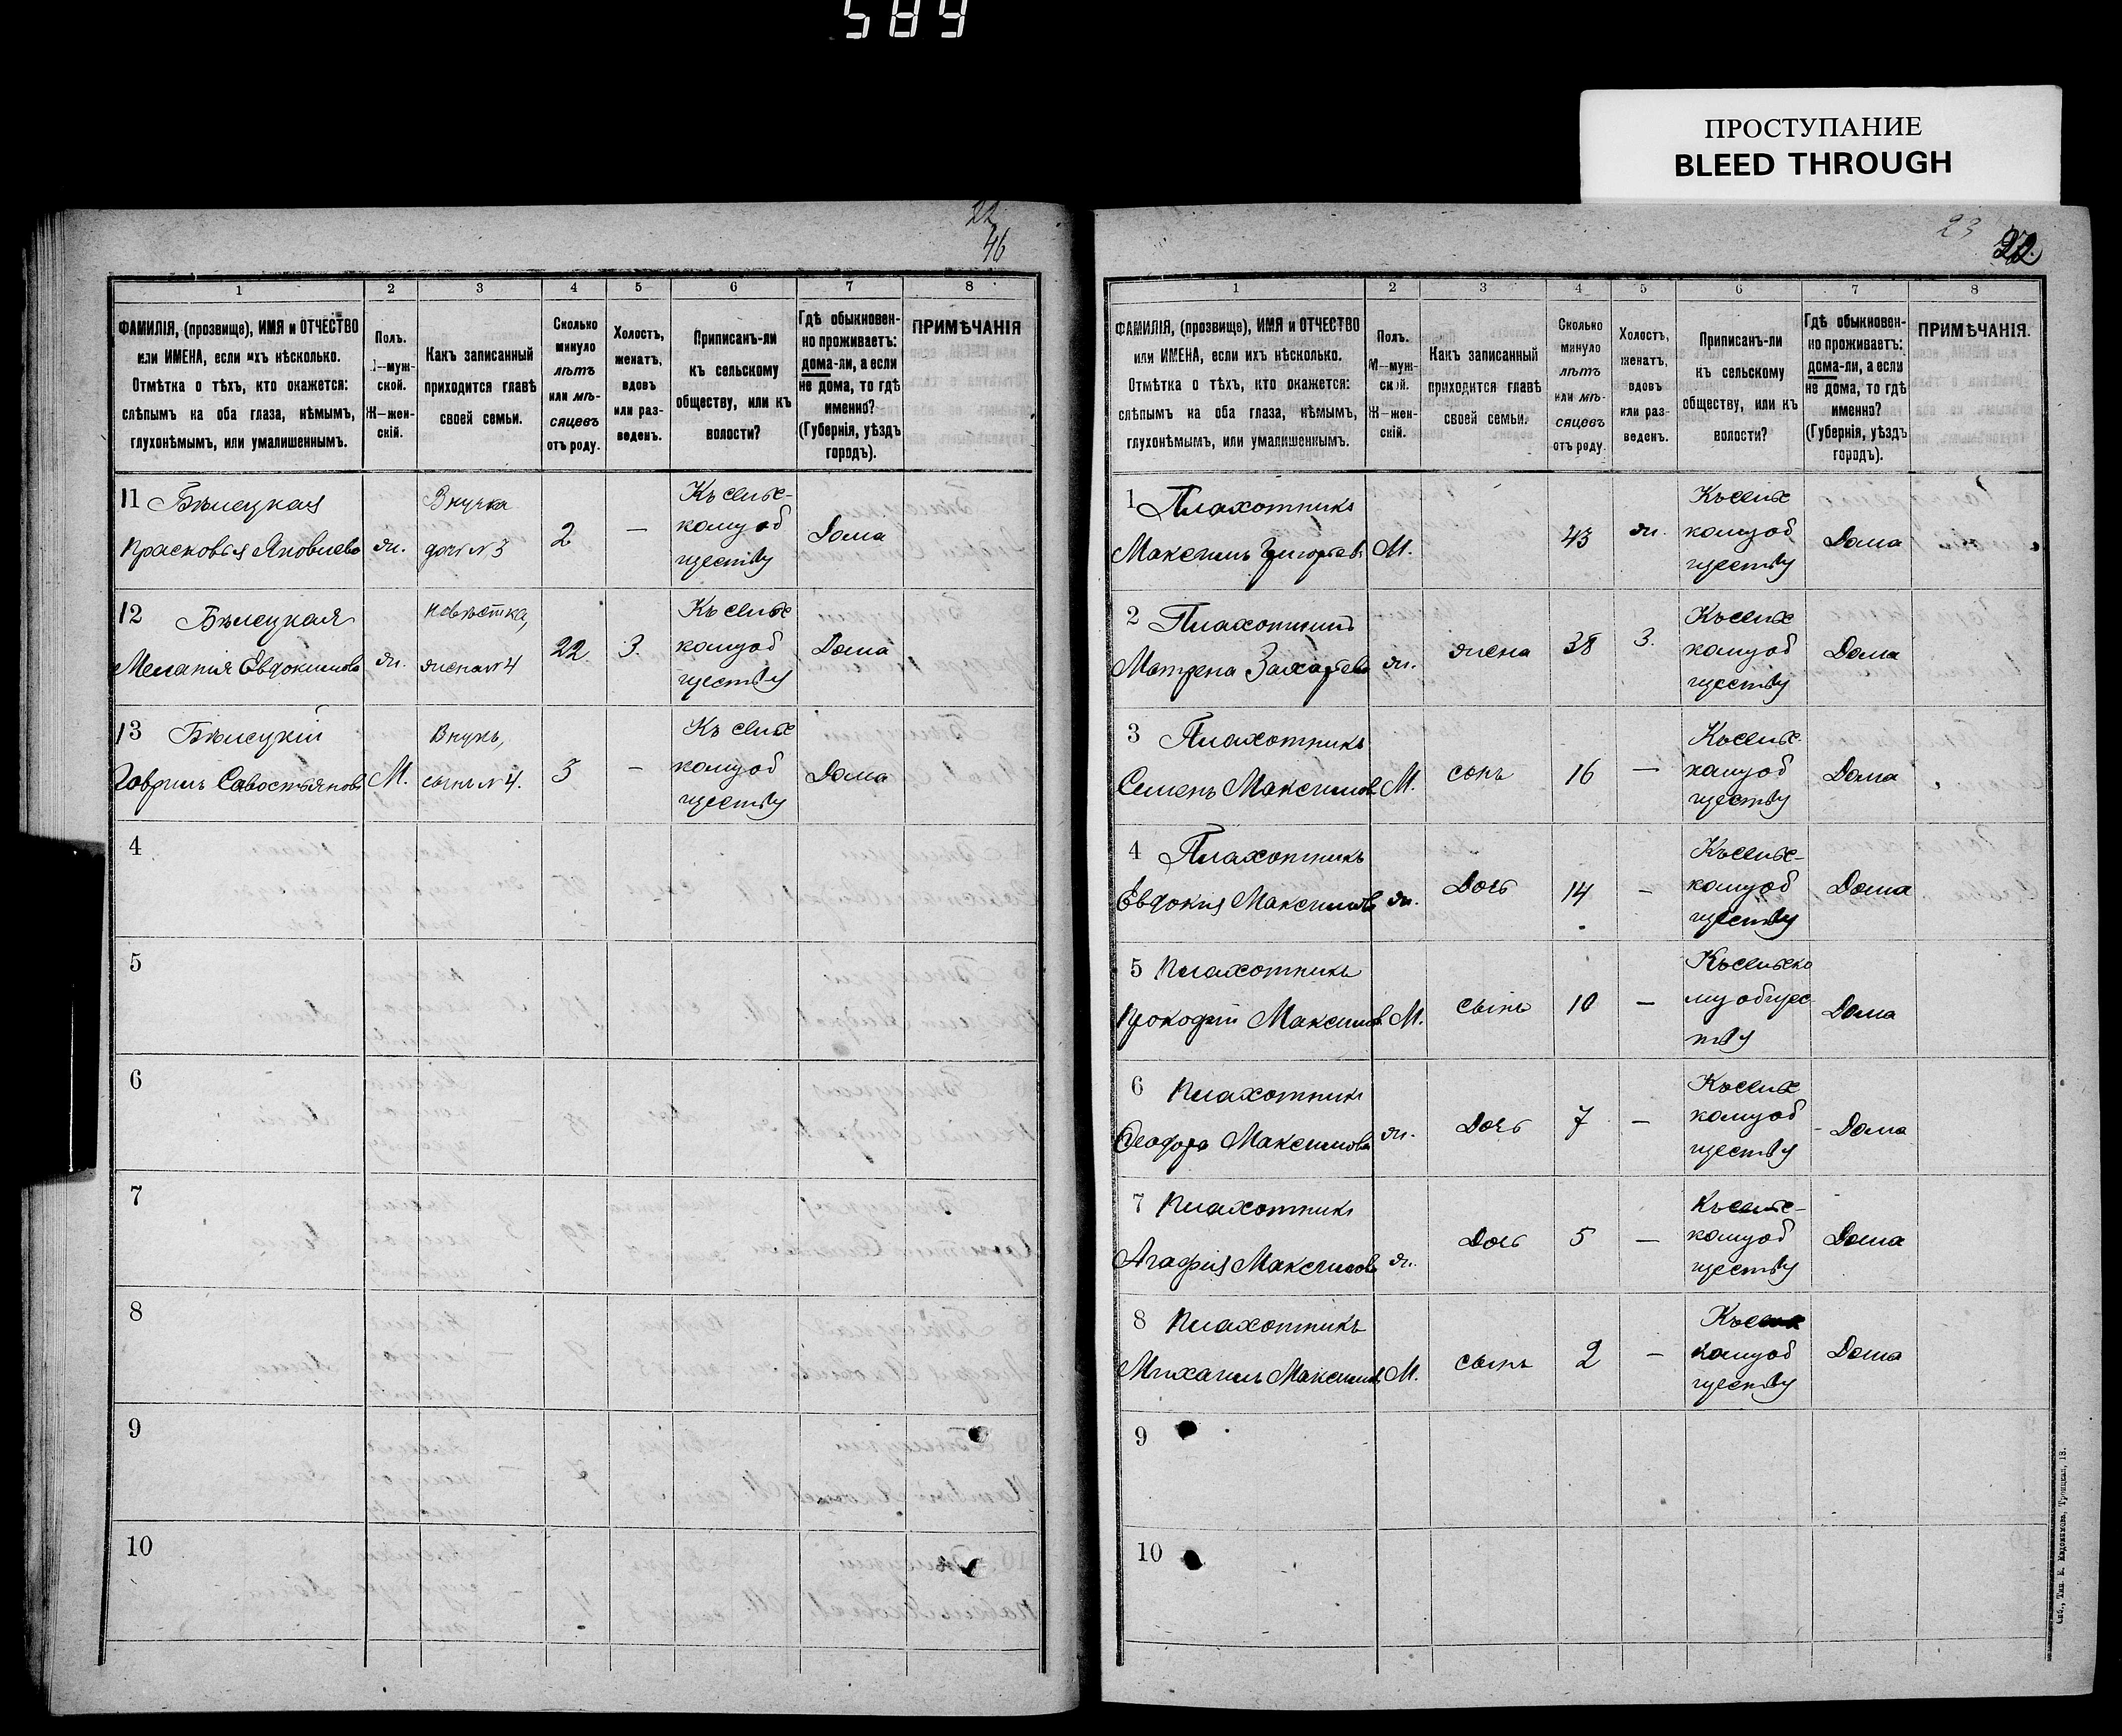 589
ПРОСТУПАНИЕ
BLEED THROUGH
22
46
1 2 3 4 5 6 7 8
ФАМИЛІЯ, (прозвище), ИМЯ и ОТЧЕСТВО
или ИМЕНА, если ихъ нѣсколько.
Отмѣтка о тѣхъ, кто окажется:
слѣпымъ на оба глаза, нѣмымъ,
глухонѣмымъ, или умалишеннымъ.
Полъ.
М—муж-
ской.
Ж—жен-
скій.
Какъ записанный
приходится главѣ
своей семьи.
Сколько
минуло
лѣтъ
или мѣ-
сяцевъ
отъ роду.
Холостъ,
женатъ,
вдовъ
или раз-
веденъ.
Приписанъ-ли
къ сельскому
обществу, или къ
волости?
Гдѣ обыкновен-
но проживаетъ:
дома-ли, а если
не дома, то гдѣ
именно?
(Губернія, уѣздъ
городъ).
ПРИМѢЧАНІЯ
11 Бѣлецкая
Прасковья Яковлева
ж.
Внучка
дочь №3
2
—
Къ сельс-
кому об
ществу
Дома
12 Бѣлецкая
Меланія Евдокимова
ж.
невѣстка,
жена №4
22
З.
Къ сельс
кому об
ществу
Дома
13 Бѣлецкій
Гаврилъ Савостьянов
М.
Внукъ,
сынъ №4.
3
—
Къ сельс
кому об
ществу
Дома
4
5
6
7
8
9
10
23
22
1 2 3 4 5 6 7 8
ФАМИЛІЯ, (прозвище), ИМЯ и ОТЧЕСТВО
или ИМЕНА, если ихъ нѣсколько.
Отмѣтка о тѣхъ, кто окажется:
слѣпымъ на оба глаза, нѣмымъ,
глухонѣмымъ, или умалишеннымъ.
Полъ.
М—муж-
ской.
Ж—жен-
скій.
Какъ записанный
приходится главѣ
своей семьи.
Сколько
минуло
лѣтъ
или мѣ-
сяцевъ
отъ роду.
Холостъ,
женатъ,
вдовъ
или раз-
веденъ.
Приписанъ-ли
къ сельскому
обществу, или къ
волости?
Гдѣ обыкновен-
но проживаетъ:
дома-ли, а если
не дома, то гдѣ
именно?
(Губернія, уѣздъ
городъ).
ПРИМѢЧАНІЯ.
1 Плахотникъ
Максимъ Григорьев
М.
43
ж.
Къ сельс
кому об
ществу
Дома
2 Плахотникъ
Матрена Захарьева
ж.
жена
38
З.
Къ сельс
кому об
ществу
Дома
3 Плахотникъ
Семенъ Максимов
М.
сынъ
16
—
Къ сельс
кому об
ществу
Дома
4 Плахотникъ
Евдокия Максимов
ж.
Дочь
14
-
Къ сельс-
кому об
ществу
Дома
5 Плахотникъ
Прокофій Максимов
М.
сынъ
10
—
Къ сельско
му общес
тву
Дома
6 Плахотникъ
Феодора Максимова
ж.
Дочь
7
—
Къ сельс
кому об
ществу
Дома
7 Плахотникъ
Агафия Максимов
ж.
Дочь
5
—
Къ сельс-
кому об
ществу
Дома
8 Плахотникъ
Михаилъ Максимов
М.
сынъ
2
—
Къ сельс
кому об
ществу
Дома
9
10
Спб., Тип. Е. Евдокимова, Троицкая, 18.